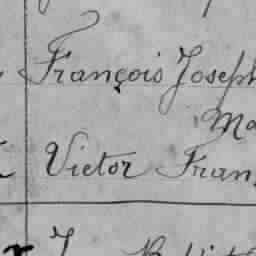 François Joseph
Ma
Victor Fran